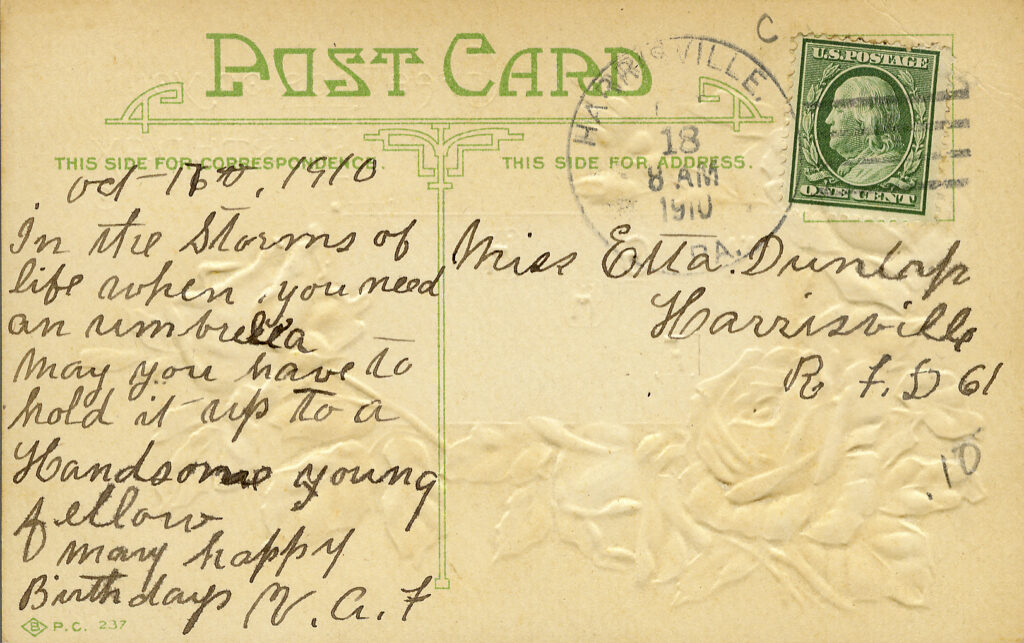 POST CARD
THIS SIDE FOR CORRESPONDENCE.
THIS SIDE FOR ADDRESS.
C
HARRISVILLE,
18
8 AM
1910
PA.
U.S. POSTAGE
ONE CENT
Oct 1910
In the Storms of
life when you need
an umbrella
may you have to
hold it up to a
Handsome young
fellow
mary happy
Birthdays V. A. F
Miss Etta Dunlap
Harrisville
R F D 61
.10
B P.C. 237